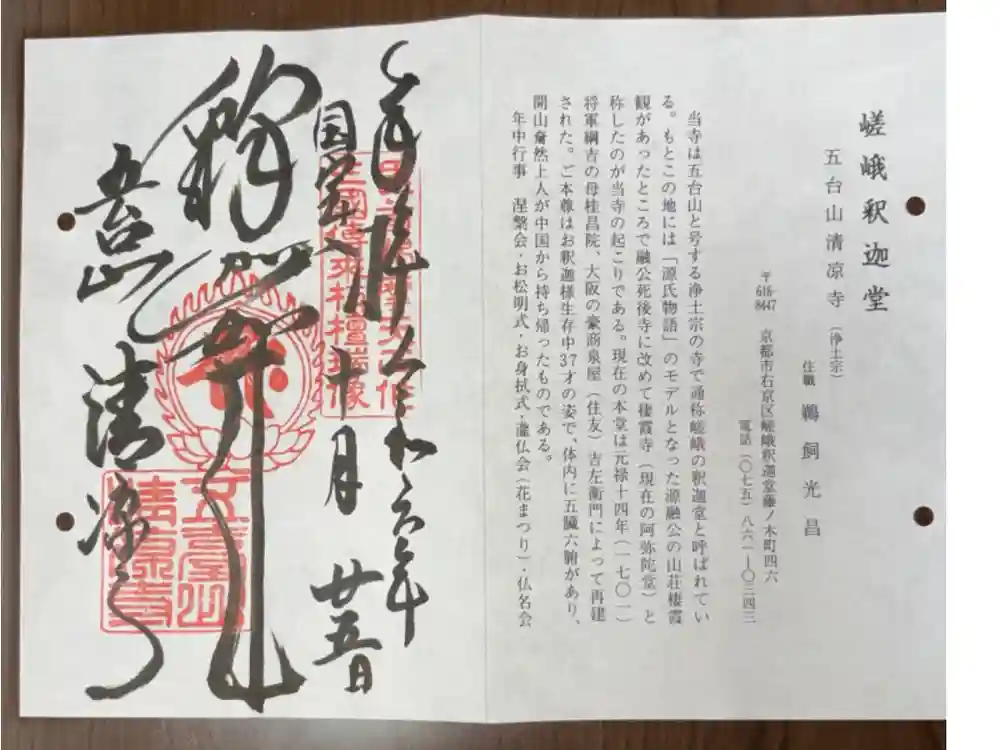 嵯峨釈迦堂
五台山清凉寺（浄土宗）
住職 鵜飼光昌
〒616-8447 京都市右京区嵯峨釈迦堂藤ノ木町四六
電話（〇七五）八六一―〇三四三
当寺は五台山と号する浄土宗の寺で通称嵯峨の釈迦堂と呼ばれてい
る。もとこの地には「源氏物語」のモデルとなった源融公の山荘棲霞
観があったところで融公死後寺に改めて棲霞寺（現在の阿弥陀堂）と
称したのが当寺の起こりである。現在の本堂は元禄十四年（一七〇一）
将軍綱吉の母桂昌院、大阪の豪商泉屋（住友）吉左衛門によって再建
された。ご本尊はお釈迦様生存中37才の姿で、体内に五臓六腑があり、
開山奝然上人が中国から持ち帰ったものである。
年中行事 涅槃会・お松明式・お身拭式・灌仏会（花まつり）・仏名会
奉拝 令和六年
国宝
十月廿五日
三國傳来栴檀瑞像
釋迦
五台山
清凉寺
五臺山
清凉寺